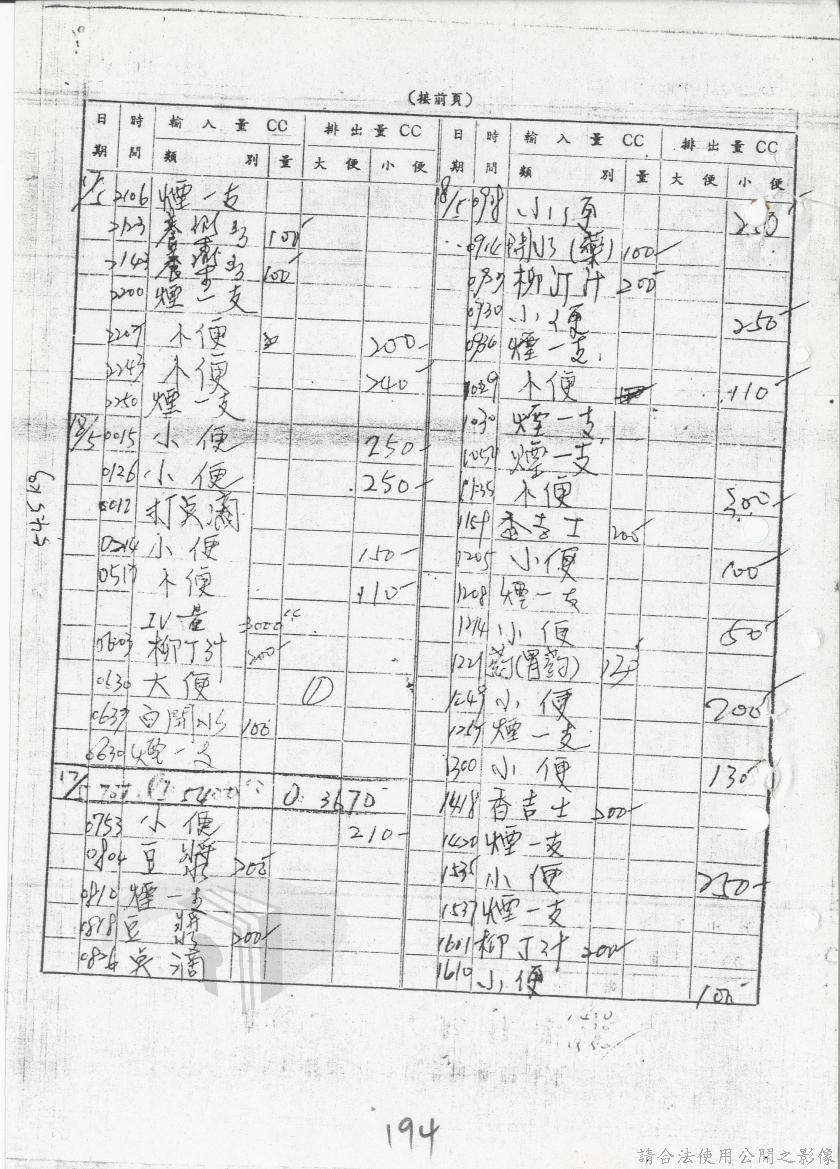 (接前頁)
日期 時間 輸入量CC 類別 量 排出量CC 大便 小便
日期 時間 輸入量CC 類別 量 排出量CC 大便 小便
17/5 2106 煙一支
2123 100
2143 100
2200 煙一支
2207 小便 200
2243 小便 240
2250 煙一支
18/5 0015 小便 250
0126 小便 250
打点滴
0214 小便 150
0517 小便 110
IV量 3000cc
0603 柳丁汁 200
0630 大便 ①
0637 白開水 100
0630 煙一支
17/5 5400cc 3670
0753 小便 210
0804 豆漿 200
0810 煙一支
0818 豆漿 200
0826 点滴
18/5 0908 小便 250
0914 開水(藥) 100
柳汀汁 200
0930 小便 250
0936 煙一支
1029 小便 110
1030 煙一支
1054 煙一支
1135 小便 300
1159 香吉士 200
1205 小便 100
1208 煙一支
1214 小便 50
1221 葯(胃葯) 120
1249 小便 200
1257 煙一支
1300 小便 130
1418 香吉士 200
1420 煙一支
1535 小便 250
1537 煙一支
1601 柳丁汁 200
1610 小便 100
54.5 kg
194
請合法使用公開之影像